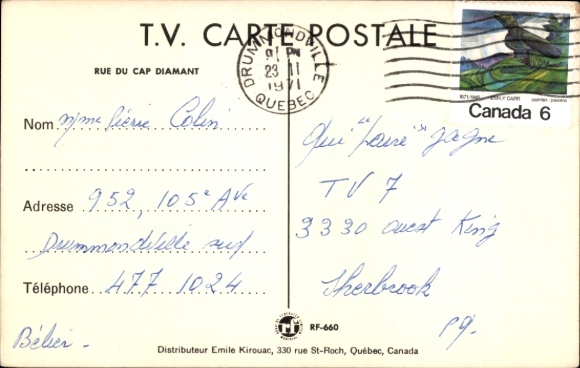 T.V. CARTE POSTALE
RUE DU CAP DIAMANT
DRUMMONDVILLE
PM
23 II
1971
QUEBEC
1871-1945 EMILY CARR painter-peintre
Canada 6
Nom Mme Pierre Colin
Adresse 952, 105e Ave
Drummondville sud
Téléphone 477 1024
Bélier -
Qui "paire" gagne
TV 7
3330 ouest King
Sherbrook
P.Q.
RF-660
Distributeur Emile Kirouac, 330 rue St-Roch, Québec, Canada